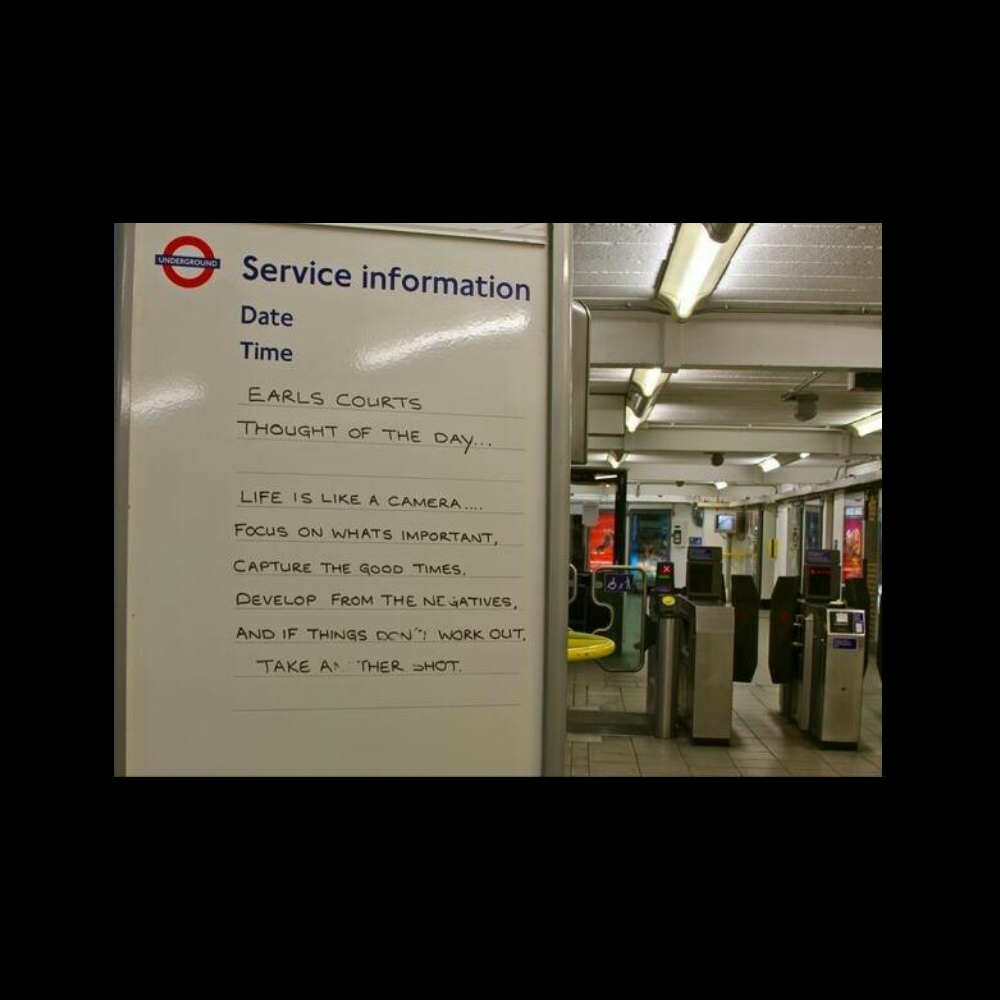 UNDERGROUND
Service information
Date
Time
EARLS COURTS
THOUGHT OF THE DAY...
LIFE IS LIKE A CAMERA....
FOCUS ON WHATS IMPORTANT,
CAPTURE THE GOOD TIMES.
DEVELOP FROM THE NEGATIVES,
AND IF THINGS DON'T WORK OUT,
TAKE ANOTHER SHOT.